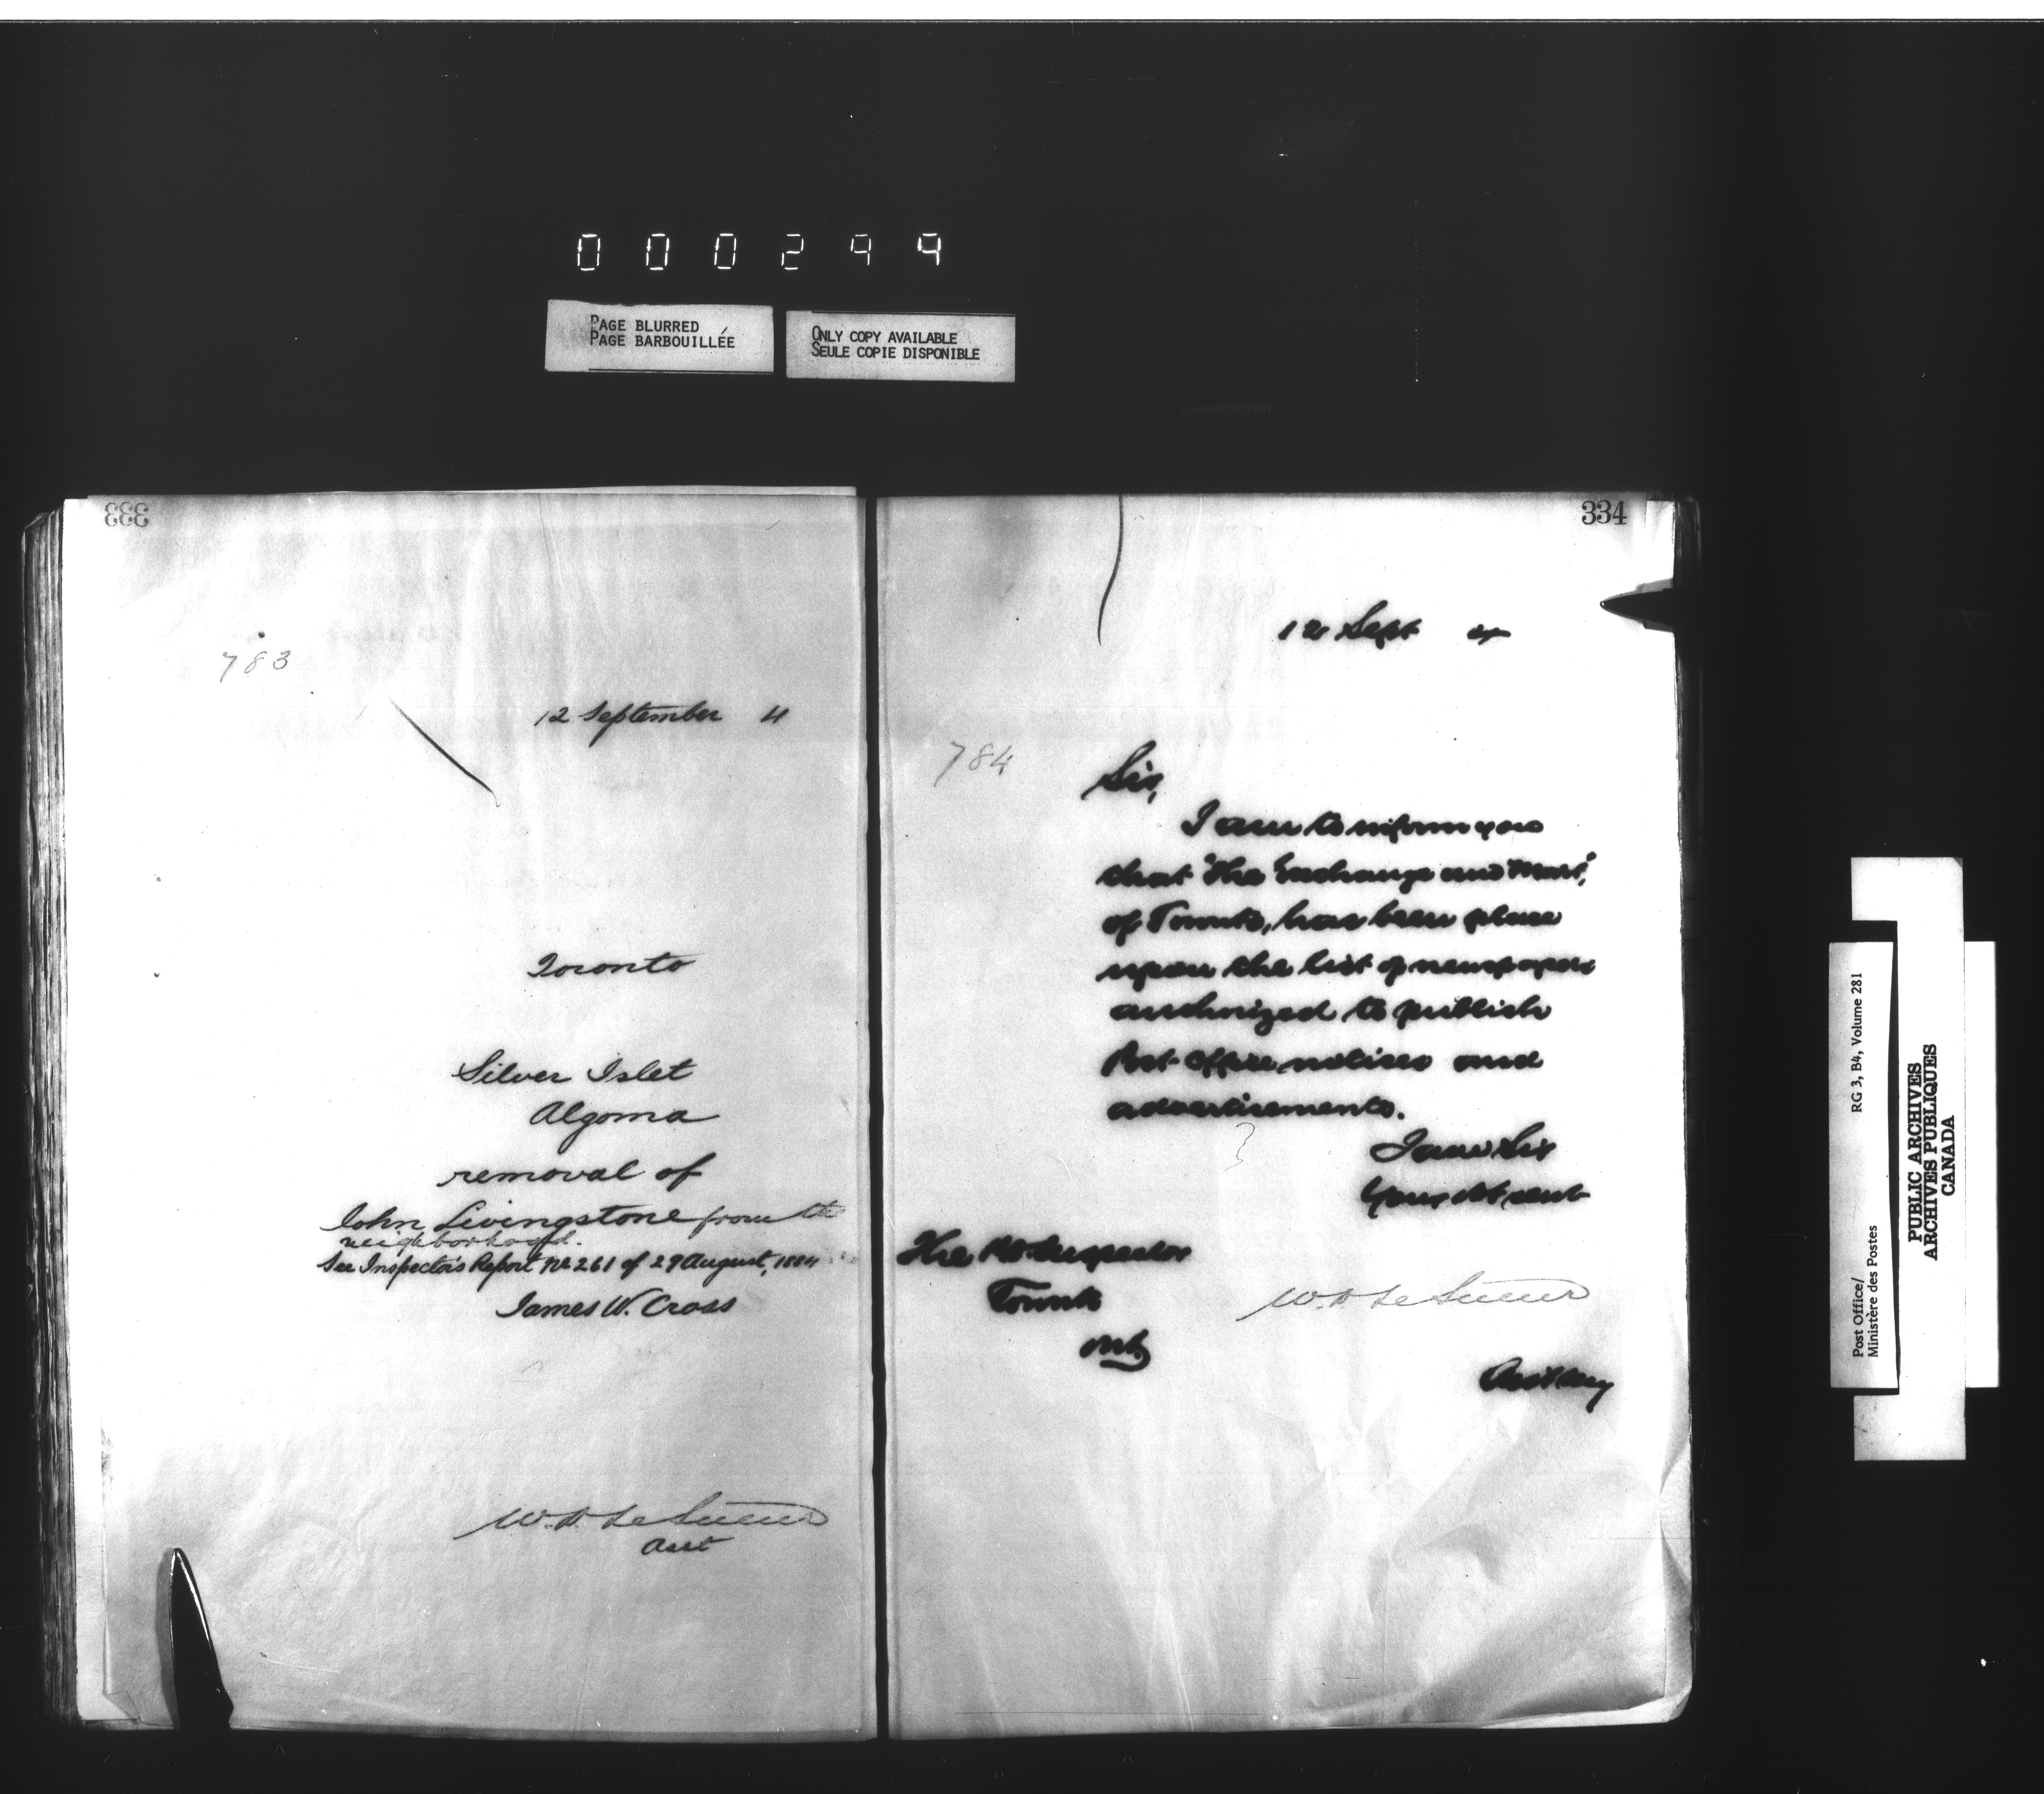 000299
PAGE BLURRED
PAGE BARBOUILLÉE
ONLY COPY AVAILABLE
SEULE COPIE DISPONIBLE
333
783
12 September 4
Toronto
Silver Islet
Algoma
removal of
John Livingstone from the
neighborhood.
See Inspector's Report No 261 of 29 August, 1884
James W. Cross
W. D. LeSueur
Asst
334
12 Sept 84
784
Sir,
I am to inform you
that "The Exchange and Mart",
of Toronto, has been place
upon the list of newspapers
authorized to publish
Post Office notices and
advertisements.
I am Sir
Your Obt servt
The P.O. Inspector
Toronto
Ont.
W. D. LeSueur
Post Office/
Ministère des Postes
RG 3, B4, Volume 281
PUBLIC ARCHIVES
ARCHIVES PUBLIQUES
CANADA